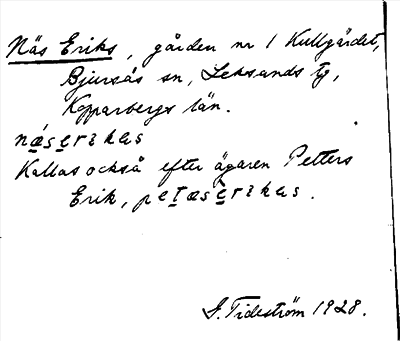 Näs Eriks, gården nr 1 Kullgärdet,
Bjursås sn, Leksands tg,
Kopparbergs län.
næserikas
Kallas också efter ägaren Petters
Erik, petæserikas.
G. Tideström 1928.